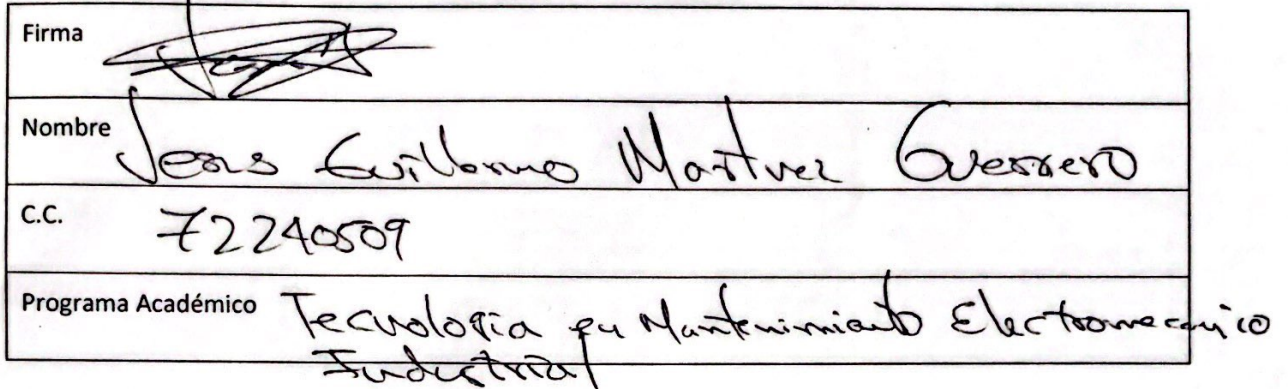 Firma
Nombre Jesus Guillermo Martinez Guerrero
C.C. 72240509
Programa Académico Tecnologia en Mantenimiento Electromecanico
Industrial